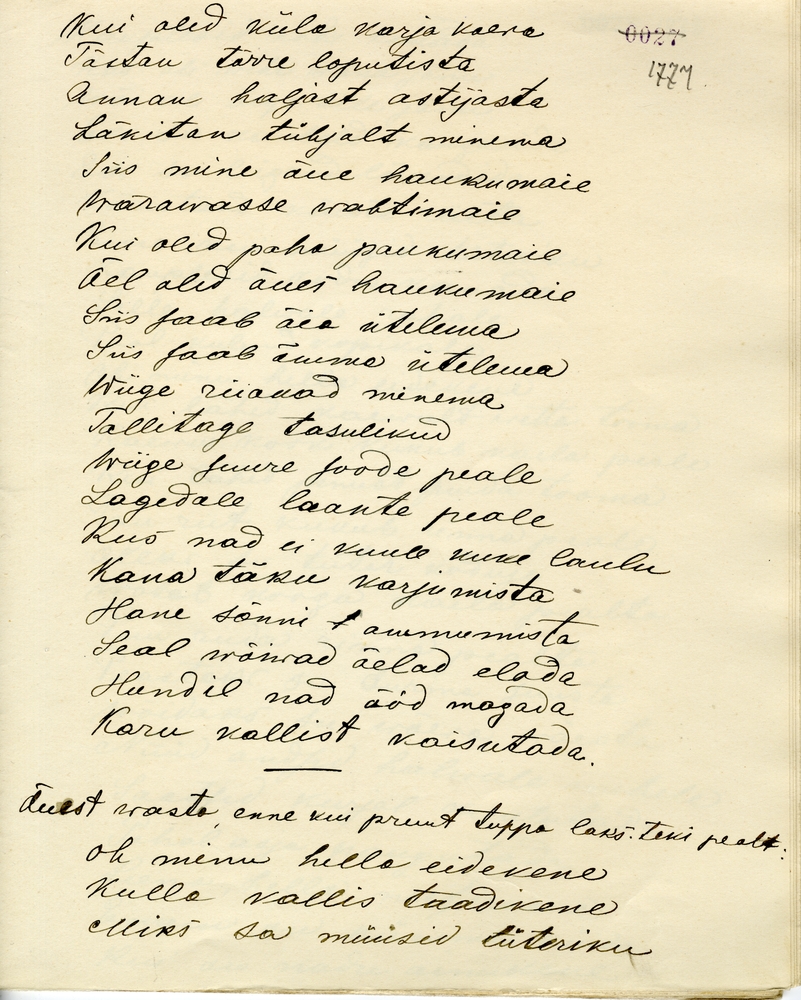 Kui oled küla karja koera
Tõstan tõrre loputista
Annan haljast astijasta
Läkitan tühjalt minema
Siis mine õue haukumaie
Wärawasse wahtimaie
Kui oled paha paukumaie
Äel oled õues haukumaie
Siis saab äia ütelema
Siis saab ämma ütelema
Wiige riianad minema
Tallitage tasulikud
Wiige suure soode peale
Lagedale laante peale
Kus nad ei kuule kuke laulu
Kana täku karjumista
Hane sõnni ammumista
Seal wõiwad äelad elada
Hundil nad ööd magada
Karu kallist kaisutada.
Õuest wasto, enne kui pruut tuppa läks. Teki pealt:
oh minu hella eidekene
Kulla kallis taadikene
Miks sa müüsid tüteriku
0027
1777